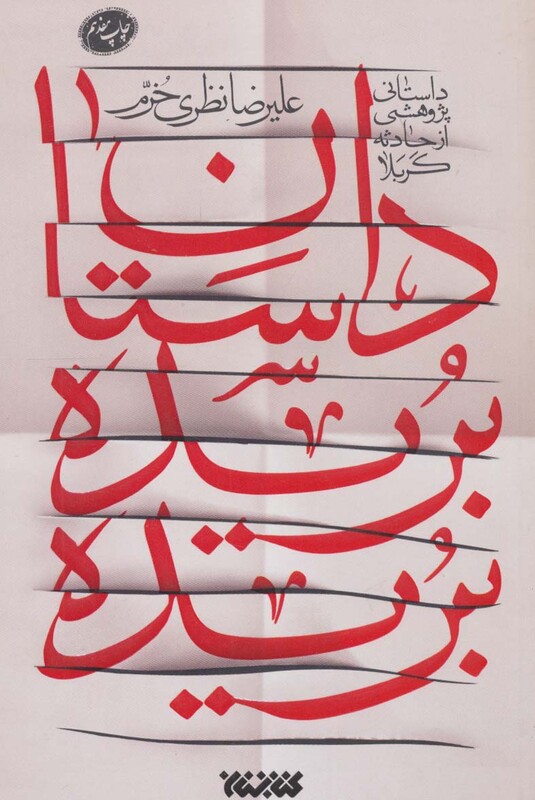 چاپ
علیرضا نظری خُرّم
داستانی
پژوهشی
از حادثه
کربلا
داستان
بُریده
بُریده
کتابستان